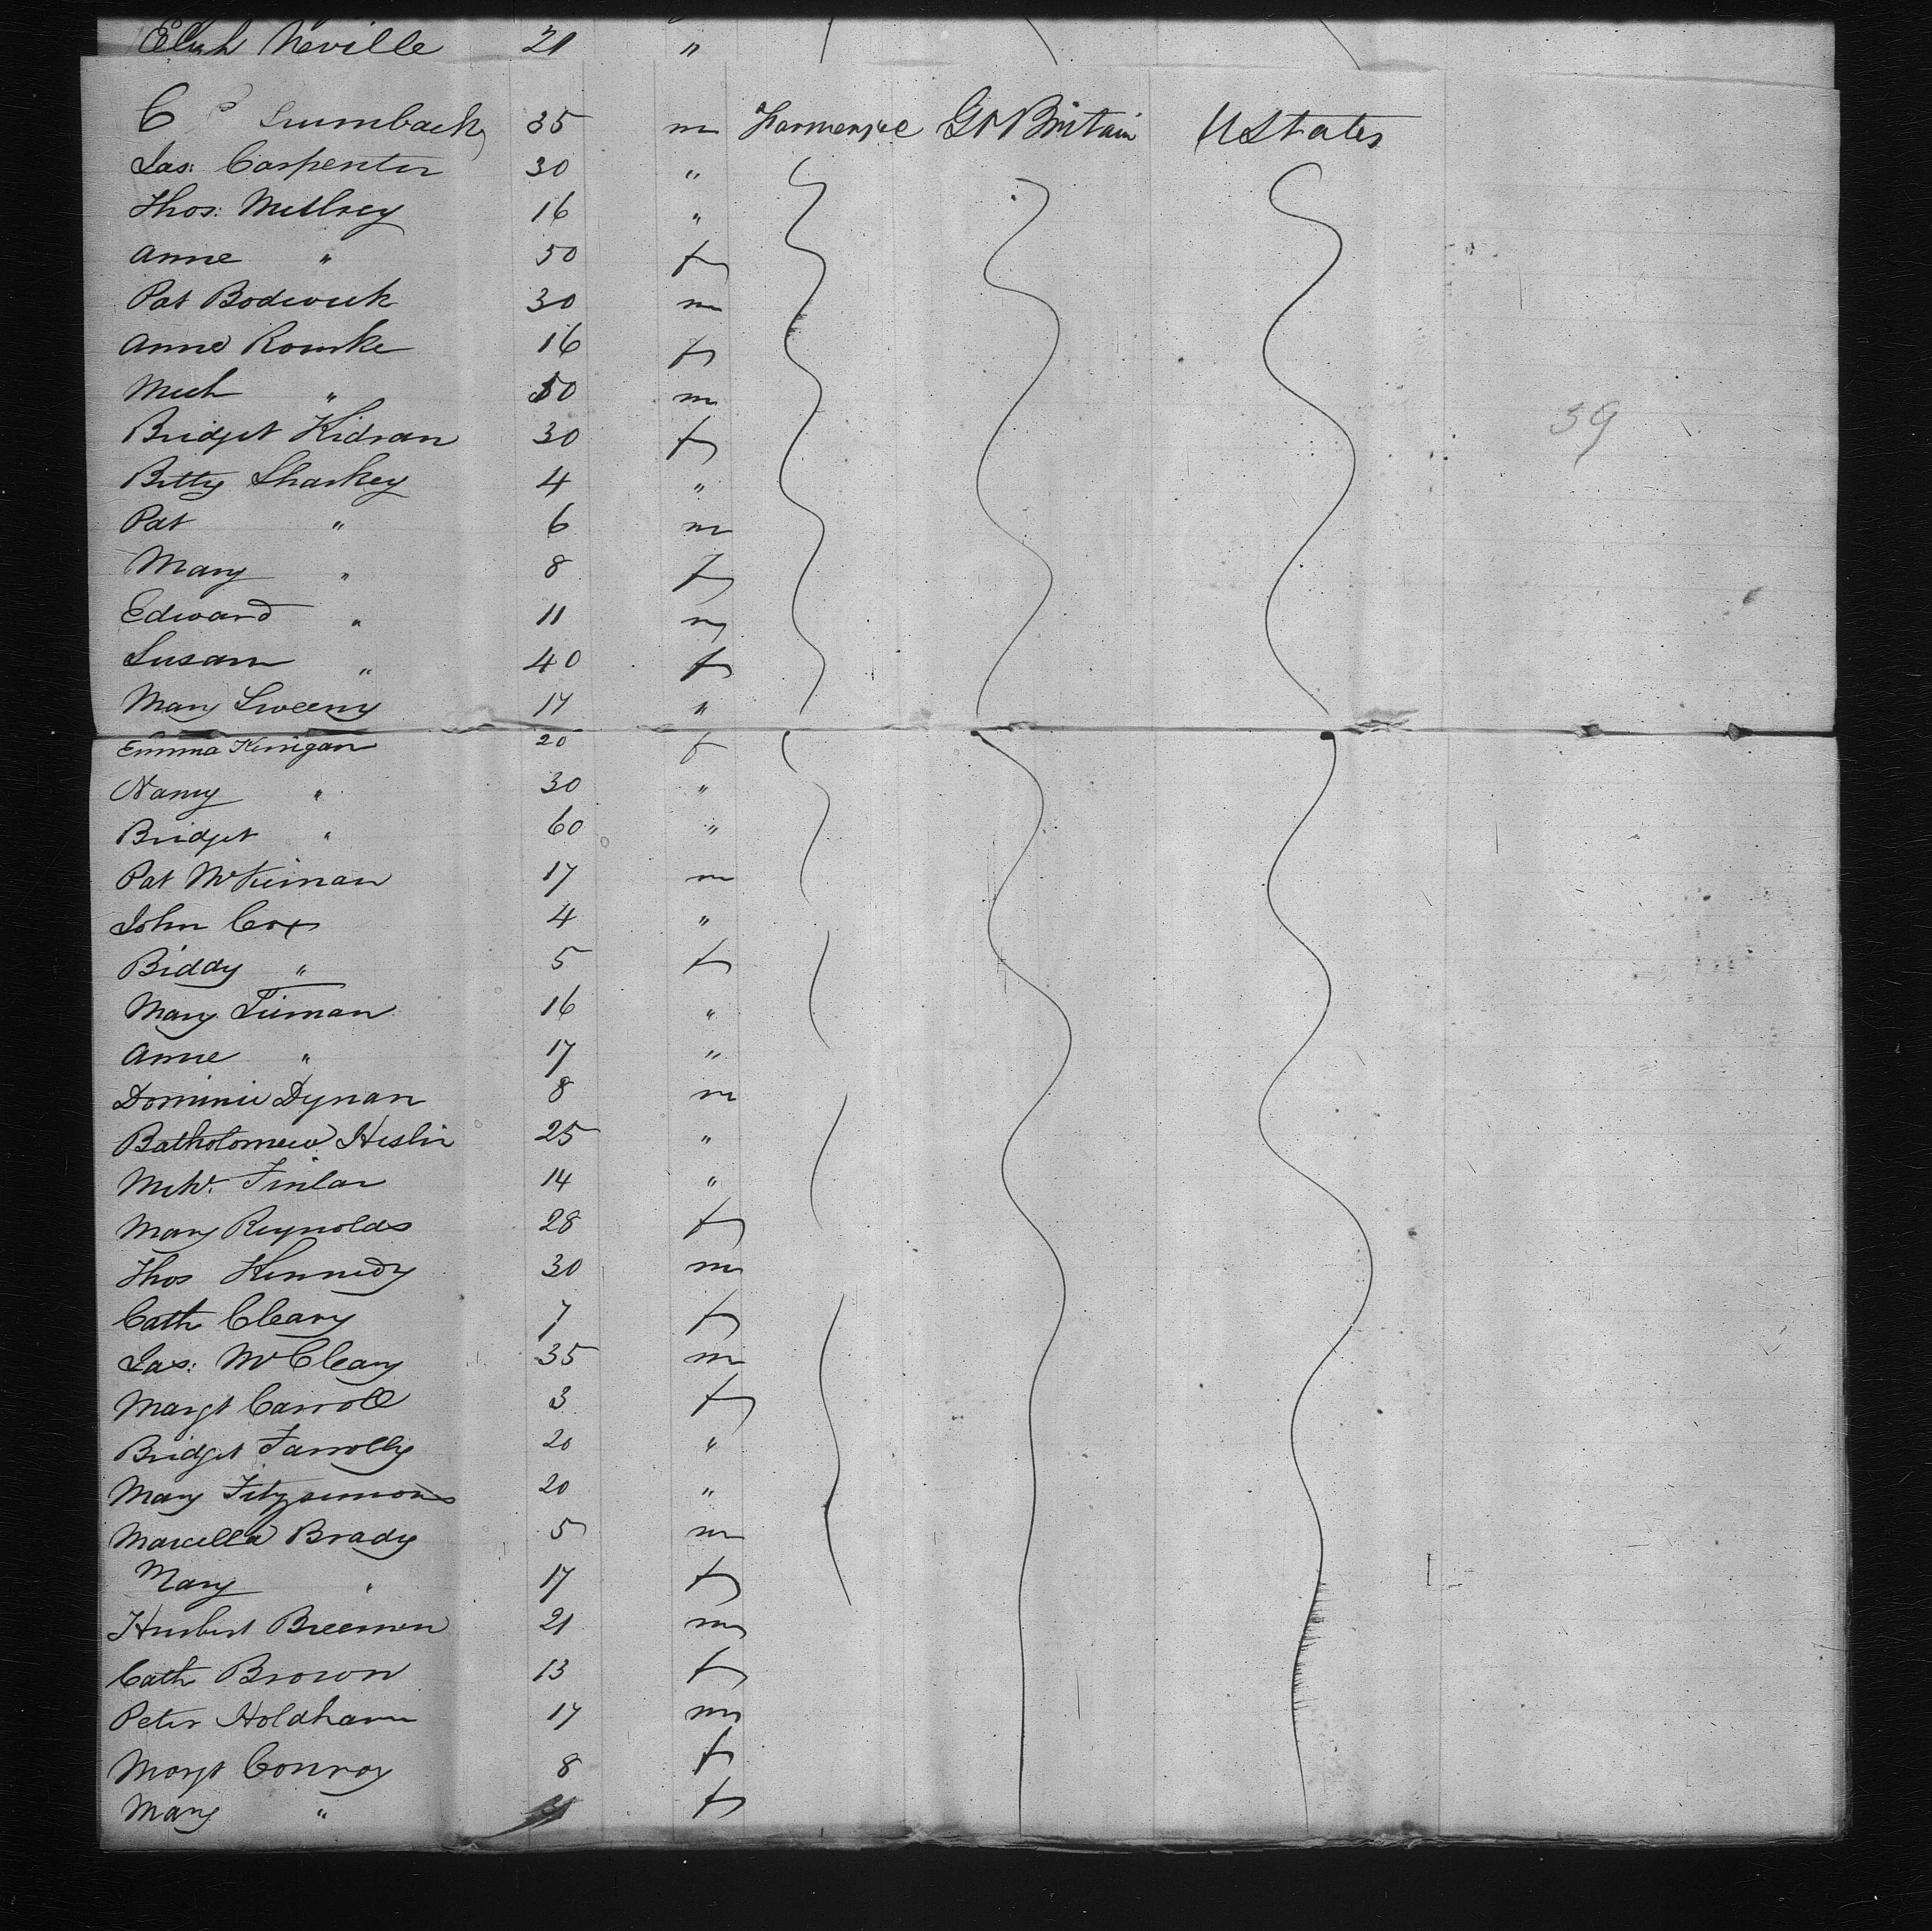 Neville 21 "
C Crumback 35 m Farmer &c Gt Britain U States
Jas: Carpenter 30 "
Thos: 16 "
Anne " 50 f
Pat Bodwick 30 m
Anne Rourke 16 f
Mich " 50 m
Bridget Kidran 30 f
Bitty Sharkey 4 "
Pat " 6 m
Mary " 8 f
Edward " 11 m
Susan " 40 f
Mary Sweeny 17 "
Emma Kerrigan 20 f
Nancy " 30 "
Bridget " 60 "
Pat McKiernan 17 m
John Cox 4 "
Biddy " 5 f
Mary Tiernan 16 "
Anne " 17 "
Dominic Dynan 8 m
Batholomew Heslin 25 "
Finlan 14 "
Mary Reynolds 28 f
Thos Kennedy 30 m
Cath Cleary 7 f
Jas: McCleary 35 m
Margt Carroll 3 f
Bridget Farrolly 20 "
Mary Fitzsimons 20 "
Marcella Brady 5 m
Mary " 17 f
Breemen 21 m
Cath Brown 13 f
Peter Holdham 17 m
Margt Conroy 8 f
Mary " f
39